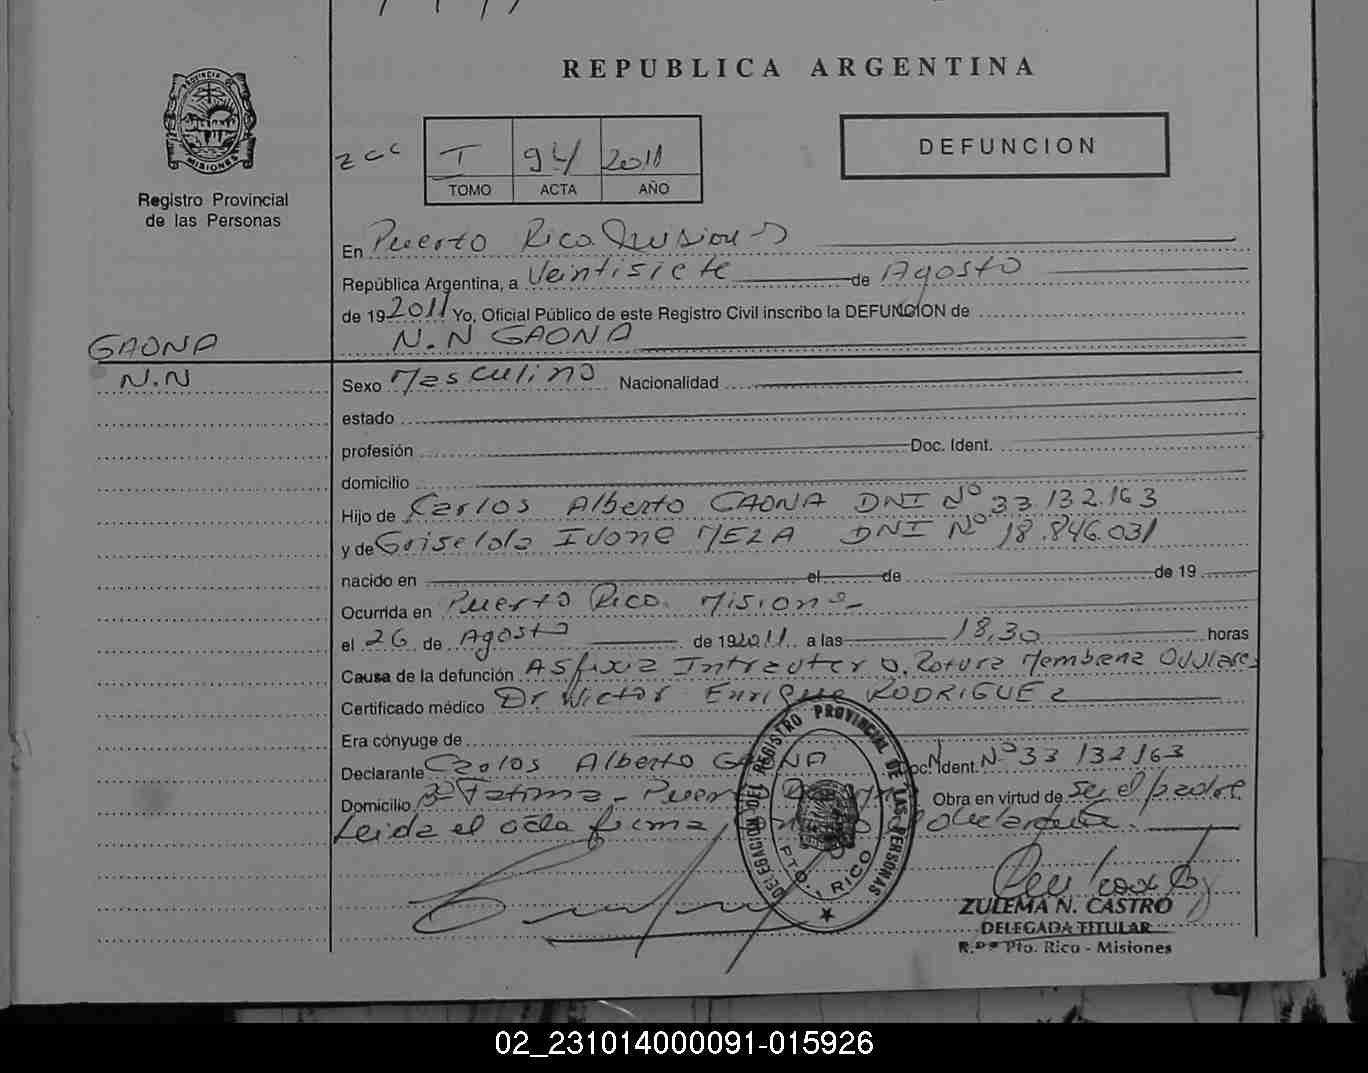 REPUBLICA ARGENTINA
PROVINCIA
MISIONES
Registro Provincial
de las Personas
I 94 2011
TOMO ACTA AÑO
DEFUNCION
En Puerto Rico. Misiones
República Argentina, a Veintisiete de Agosto
de 192011 Yo, Oficial Público de este Registro Civil inscribo la DEFUNCION de
N.N GAONA
GAONA
N.N
Sexo Masculino Nacionalidad
estado
profesión Doc. Ident.
domicilio
Hijo de Carlos Alberto GAONA DNI Nº 33 132.163
y de Griselda Ivone MEZA DNI Nº 18.846.031
nacido en el de de 19
Ocurrida en Puerto Rico. Misiones
el 26 de Agosto de 192011 a las 18,30 horas
Causa de la defunción Asfixia Intrauter. Rotura Membrana Ovulares
Certificado médico Dr Victor Enrique RODRIGUEZ
Era cónyuge de
Declarante Carlos Alberto GAONA Doc. Ident. Nº 33 132163
Domicilio Bº Fatima - Puerto Obra en virtud de ser el padre
Leida el acta firma declarante.
DELEGACION DEL REGISTRO PROVINCIAL DE LAS PERSONAS
PTO. RICO
ZULEMA N. CASTRO
DELEGADA TITULAR
R.P.P. Pto. Rico - Misiones
02_231014000091-015926